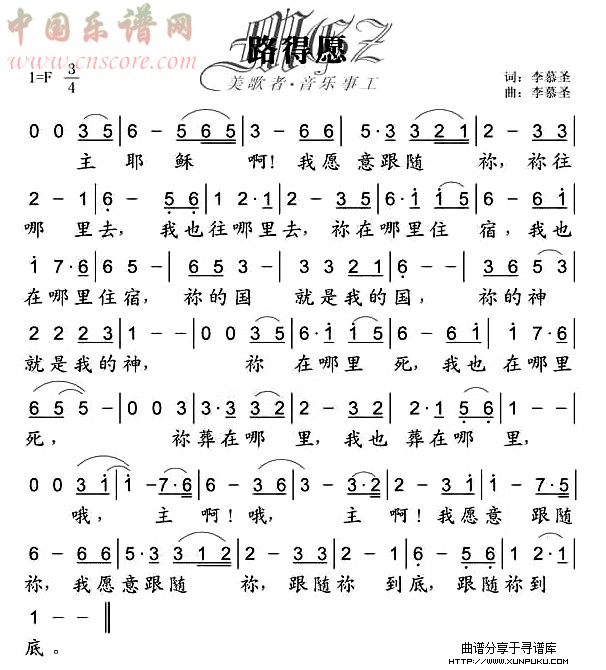 中国乐谱网
www.cnscore.com
MGZ
路得愿
美歌者·音乐事工
1=F 3/4
词：李慕圣
曲：李慕圣
0 0 3 5 | 6 - 5 6 5 | 3 - 3 6 | 5·3 3 2 1 | 2 - 3 3 |
主 耶 稣 啊！我 愿 意 跟 随 祢，祢 往
2 - 1 | 6 - 5 6 | 1 2·1 | 2 - 3 5 | 6·i i 5 | 6 - 6 i |
哪 里 去， 我 也 往 哪 里 去，祢 在 哪 里 住 宿，我 也
i 7·6 | 6 5 - | 5 6 3 | 3 3 2 1 | 6 - - | 3 6 5 3 |
在 哪 里 住 宿， 祢 的 国 就 是 我 的 国， 祢 的 神
2 2 2 3 | 1 - - | 0 0 3 5 | 6·i i 5 | 6 - 6 i | i 7·6 |
就 是 我 的 神， 祢 在 哪 里 死，我 也 在 哪 里
6 5 5 - | 0 0 3 | 3·3 3 2 | 2 - 3 2 | 2·1 5 6 | 1 - - |
死， 祢 葬 在 哪 里，我 也 葬 在 哪 里，
0 0 3 i | i - 7·6 | 6 - 3 6 | 3 - 3·2 | 2 - 3 i | i - 7·5 |
哦， 主 啊！哦， 主 啊！我 愿 意 跟 随
6 - 6 6 | 5·3 3 1 2 | 2 - 1 2 | 6 - 5 6 | 1 2·1 |
祢，我 愿 意 跟 随 祢，跟 随 祢 到 底，跟 随 祢 到
1 - - ‖
底。
曲谱分享于寻谱库
HTTP://WWW.XUNPUKU.COM